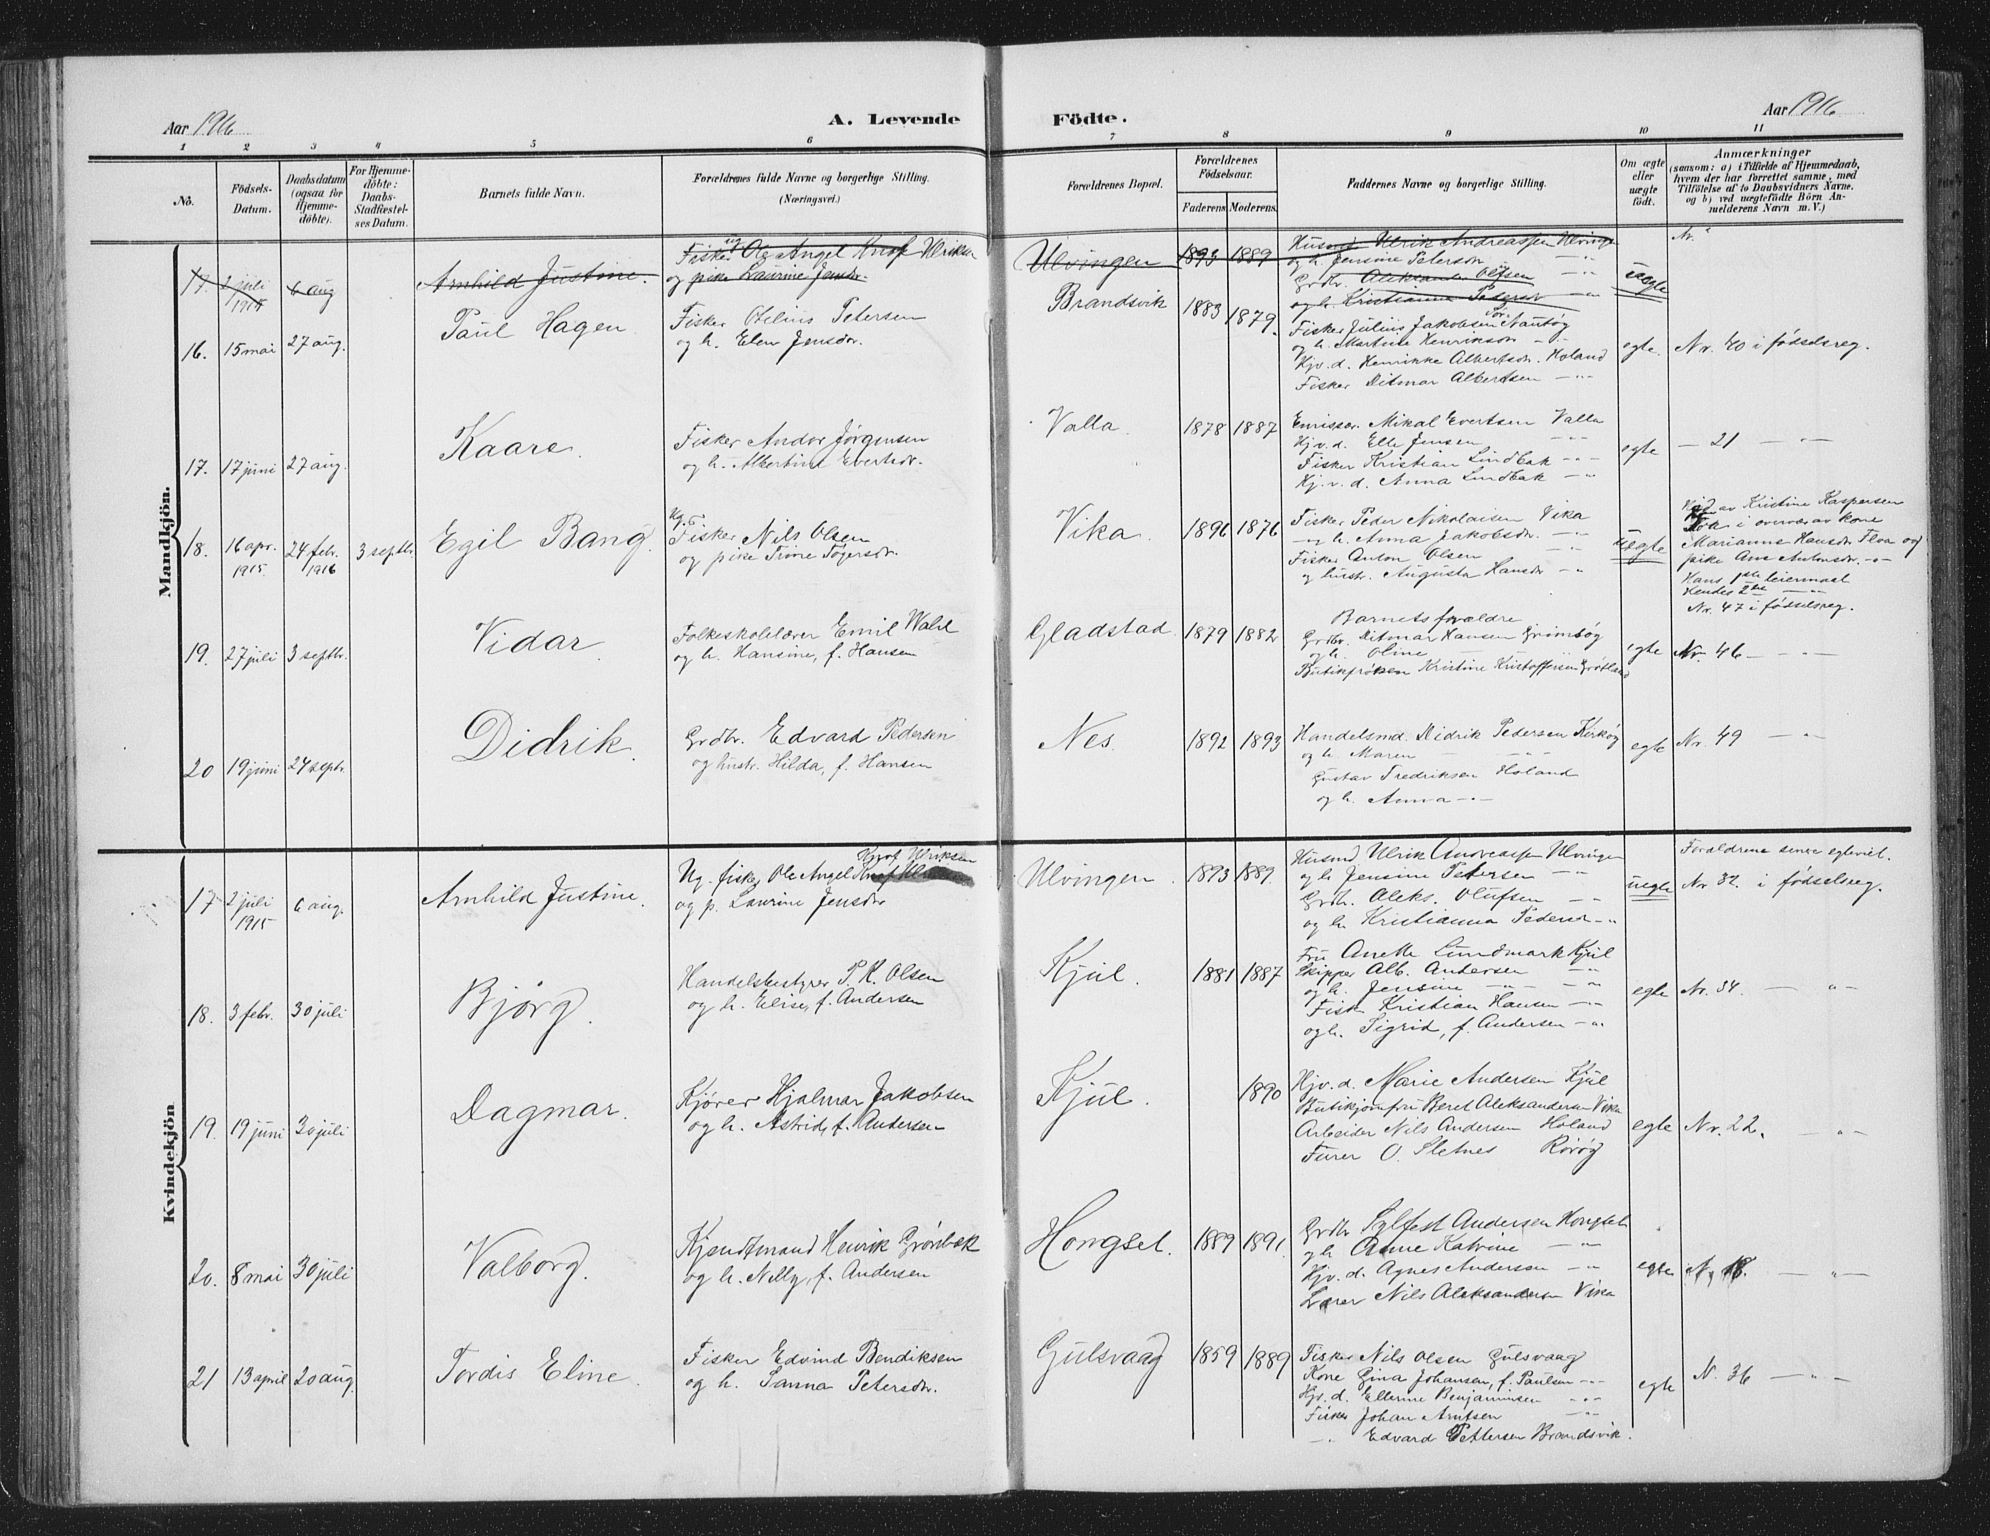 Aar 1916
A. Levende
Födte.
Aar 1916
1 2 3 4 5 6 7 8 9 10 11
No.
Födsels-
Datum.
Daabsdatum
(ogsaa for
Hjemme-
döbte).
For Hjemme-
döbte:
Daabs-
Stadfæstel-
ses Datum.
Barnets fulde Navn.
Forældrenes fulde Navne og borgerlige Stilling.
(Næringsvei.)
Forældrenes Bopæl.
Forældrenes
Födselsaar.
Faderens. Moderens.
Faddernes Navne og borgerlige Stilling.
Om ægte
eller
uægte
födt.
Anmærkninger
(saasom: a) i Tilfælde af Hjemmedaab,
hvem der har forrettet samme, med
Tilföielse af to Daabsvidners Navne.
og b) ved uægtefödte Börn An-
melderens Navn m. V.)
Mandkjön.
17. 2 juli
1915
6 aug
Arnhild Justine.
ug
Fisker Ole Angel Knof Ulriksen
og pike Laurine Jensdr.
Ulvingen
1893 1889
Husmd Ulrik Andreassen Ulvingen
og h. Jensine Petersdr — " —
Grdbr. Aleksander Olufsen — " —
og h. Kristianna Pedersdr — " —
uegte
Nr. "
16. 15 mai 27 aug.
Paul Hagen.
Fisker Otelius Petersen
og h. Elen Jensdr.
Brandsvik
1883 1879.
Fisker Julius Jakobsen
og h. Martine Henriksdr — " —
Hjv. d. Henrikke Albertsdr. Holand
Fisker Ditmar Albertsen — " —
egte.
Nr. 40 i fødselsreg.
17. 17 juni 27 aug.
Kaare.
Fisker Andor Jørgensen
og h. Albertine Evertsdr.
Valla.
1878 1887
Emissær. Mikal Evertsen Valla
Hjv. d. Elle Jensen — " —
Fisker Kristian Lindbak — " —
Hj. v. d. Anna Lindbak — " —
egte
— 21 — " —
18. 16 apr.
1915.
24 febr.
1916
3 septbr.
Egil Bang.
Ug.
Fisker Nils Olsen
og pike Trine Togersdr.
Vika.
1896 1876
Fisker Peder Nikolaisen Vika
og h. Anna Jakobsdr. — " —
Fisker Anton Olsen — " —
og hustr. Augusta Hansdr — " —
uegte
Hjd av Kristine Kaspersen
i overvær av kone
Marianne Hansdr. Flva og
pike Ane Antonsdr. — " —
Hans 1ste leiermaal
Hendes 2det — " —
Nr. 47 i fødselsreg.
19. 27 juli 3 septbr.
Vidar.
Folkeskolelærer Emil Wahl
og h. Hansine, f. Hansen
Gladstad.
1879 1882
Barnets forældre
Grdbr. Ditmar Hansen Grimsøy
og h. Oline — " —
Butikfrøken Kristine Kristoffersen Grøtland
egte
Nr. 46 — " —
20 19 juni 24 septbr.
Didrik.
Grdbr. Edvard Pedersen
og hustr. Hilda, f. Hansen
Nes.
1892 1893
Handelsmd. Didrik Pedersen Kirkøy
og h. Maren — " —
Gustav Fredriksen Holand
og h. Anna — " —
egte
Nr. 49 — " —
Kvindekjön
17 2 juli
1915
6 aug.
Arnhild Justine.
Ug. fisker Ole Angel Knof Ulriksen
og p. Laurine Jensdr
Ulvingen.
1893 1889.
Husmd Ulrik Andreassen Ulvingen
og h. Jensine Petersen — " —
Grdb. Aleks. Olufsen — " —
og h. Kristianna Pedersdr — " —
uegte
Forældrene senere egteviet.
Nr 32. i fødselsreg.
18. 3 febr. 30 juli
Bjørg.
Handelsbestyrer P. K. Olsen
og h. Elise, f. Andersen
Kjul.
1881 1887
Fru Anette Lundmark Kjul
Skipper Alb. Andersen — " —
og h. Jensine — " —
Fisk. Kristian Hansen — " —
og h. Sigrid, f. Andersen — " —
egte
Nr. 34. — " —
19. 19 juni 30 juli
Dagmar.
Kjører Hjalmar Jakobsen
og h. Astrid, f. Andersen
Kjul.
1890
Hjv. d. Marie Andersen Kjul
Butikjomfru Beret Aleksandersen Vika
Arbeider Nils Andersen Holand
Furer O. Sletnes Rørøy
egte
Nr. 22. — " —
20. 8 mai 30 juli
Valborg.
Kjendtmand Henrik Grønbæk
og h. Nelly, f. Andersen
Hongset.
1889 1891.
Grdbr Sylfest Andersen Hongset
og h. Anne Katrine — " —
Hjv. d. Agnes Andersen — " —
Lærer Nils Aleksandersen Vika
egte
N. 18. — " —
21 13 april 20 aug.
Tordis Eline.
Fisker Edvind Bendiksen
og h. Sanna Petersdr.
Gulsvaag
1859 1889
Fisker Nils Olsen Gulsvaag
Kone Gina Johansen, f. Paulsen — " —
Hjv. d. Ellerine Benjaminsen — " —
Fisker Johan Arntsen — " —
— " — Edvard Pettersen Brandsvik.
egte
N. 36 — " —